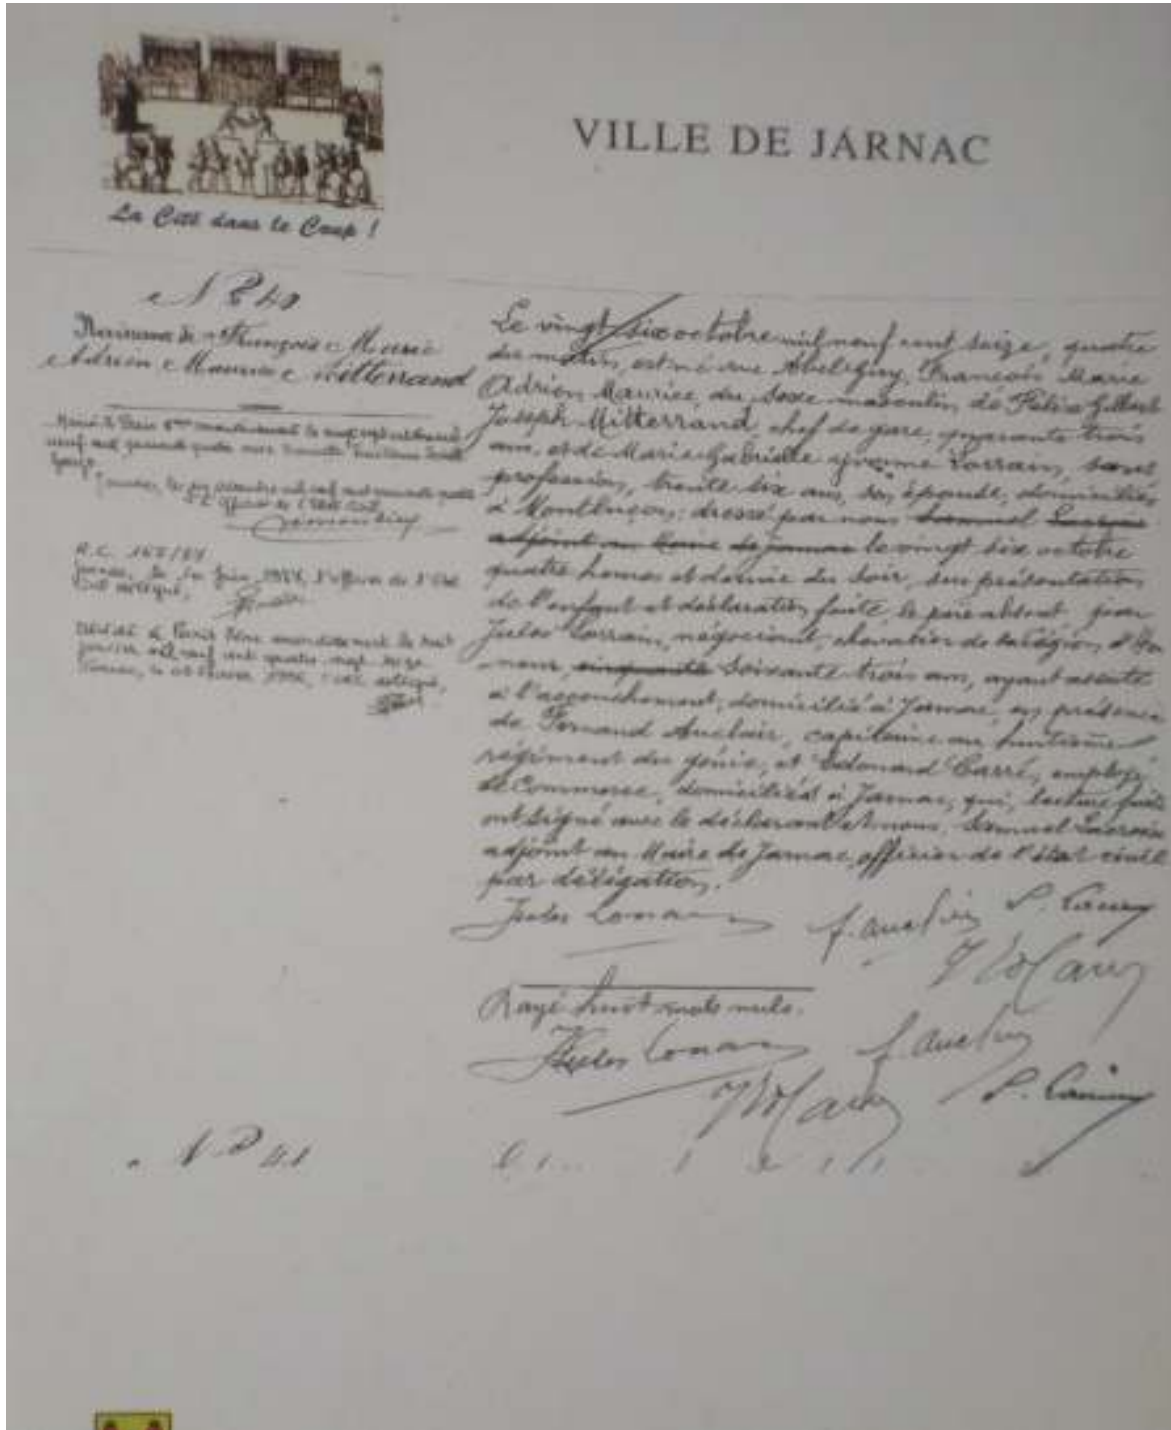 VILLE DE JARNAC
La Cité dans le Coup !
N° 40
Naissance de François Marie
Adrien Maurice Mitterrand
Marié à Paris 6me arrondissement le vingt sept octobre mil
neuf cent quarante quatre avec
Gouze.
Jarnac, le
L'Officier de l'Etat Civil,
R.C. 165/84
Jarnac, le 1er Juin 1984, l'officier de l'Etat
Civil délégué,
Décédé à Paris 7ème arrondissement le huit
janvier mil neuf cent quatre vingt seize
Jarnac, le Janvier 1996, l'OEC délégué,
Le vingt six octobre mil neuf cent seize, quatre
du matin, est né rue Abel Guy, François Marie
Adrien Maurice, du sexe masculin, de Félix Gilbert
Joseph Mitterrand, chef de gare, quarante trois
ans, et de Marie Gabrielle Yvonne Lorrain, sans
profession, trente six ans, son épouse, domiciliés
à Montluçon; dressé par nous Samuel Lacroix
adjoint au Maire de Jarnac le vingt six octobre
quatre heures et demie du soir, sur présentation
de l'enfant et déclaration faite, le père absent, par
Jules Lorrain, négociant, chevalier de la Légion d'Hon
neur, cinquante soixante trois ans, ayant assisté
à l'accouchement, domicilié à Jarnac, en présence
de Fernand Auclair, capitaine au huitième
régiment du génie, et Edouard Carré, employé
de Commerce, domiciliés à Jarnac, qui, lecture faite
ont signé avec le déclarant et nous, Samuel Lacroix
adjoint au Maire de Jarnac, officier de l'état civil
par délégation.
Jules Lorrain f. Auclair
Rayé huit mots nuls.
Jules Lorrain f. Auclair
N° 41